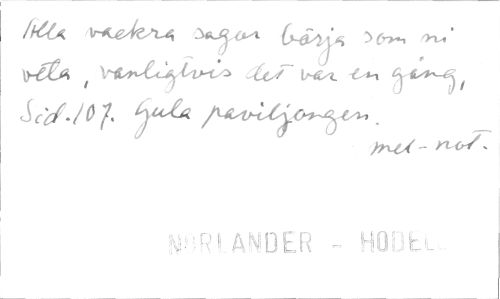 Alla vackra sagor börja som ni
veta, vanligtvis det var en gång,
Sid. 107. Gula paviljongen.
mel-not.
NORLANDER - HODELL